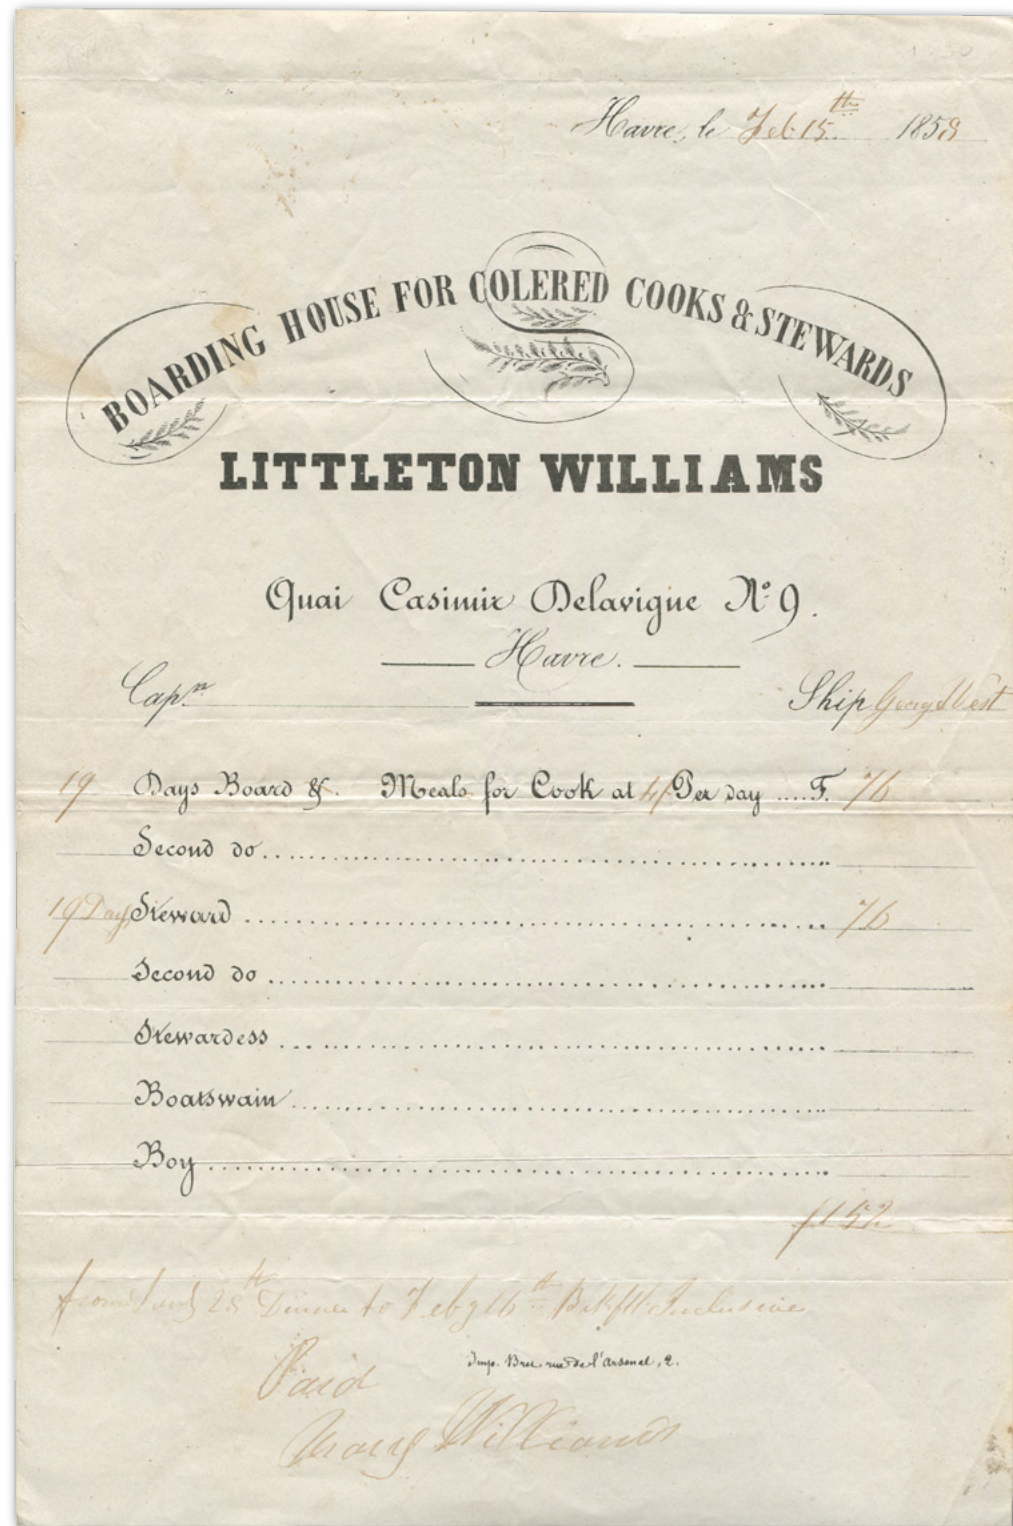 Havre, le Feb 15th 1858
BOARDING HOUSE FOR COLERED COOKS & STEWARDS
LITTLETON WILLIAMS
Quai Casimir Delavigne No 9.
Havre.
Capn Ship West
19 Days Board &. Meals for Cook at 4f Per day ....F. 76
Second do
19 Days Steward 76
Second do
Stewardess
Boatswain
Boy
f152
from 28th Dinner to Feby 16th Bkfst Inclusive
Imp. Bree rue de l'arsenal, 2.
Paid
Mary Williams